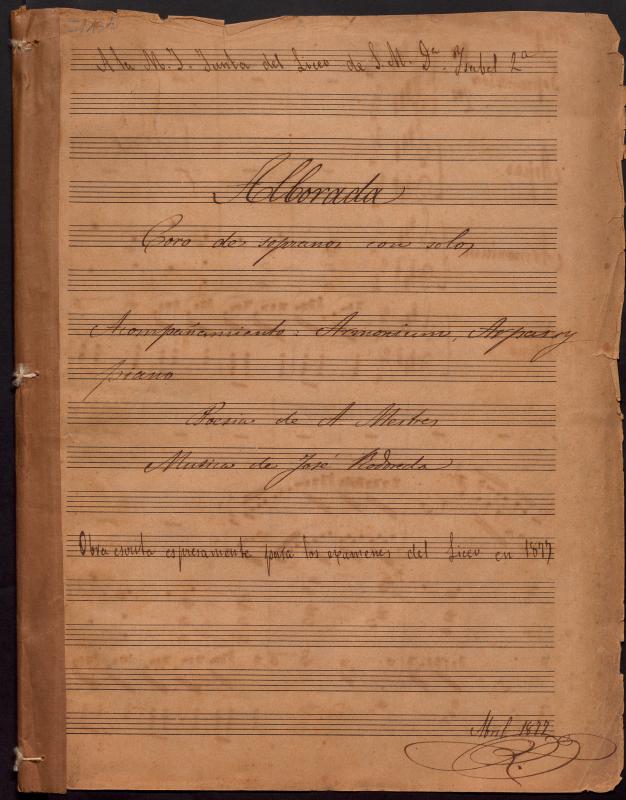 A la M. I. Junta del Liceo de S. M. Dª. Isabel 2ª
Alborada
Coro de sopranos con solos
Acompañamiento: Armonium, Arpas y
piano
Poesia de A Mestres
Musica de José Rodoreda
Obra escrita espresamente para los examenes del Liceo en 1877
Abril 1877